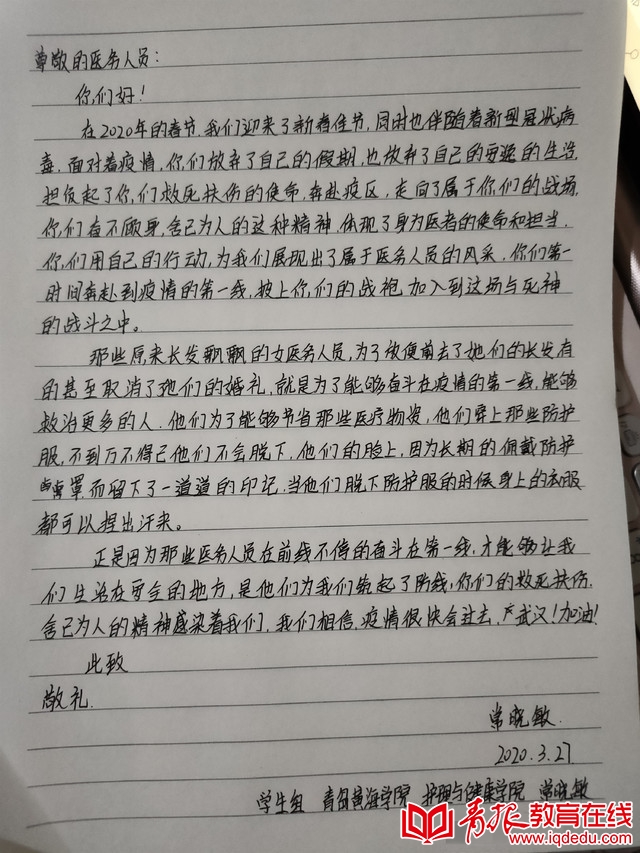 尊敬的医务人员：
你们好！
在2020年的春节，我们迎来了新春佳节，同时也伴随着新型冠状病
毒，面对着疫情，你们放弃了自己的假期，也放弃了自己的安逸的生活，
担负起了你们救死扶伤的使命，奔赴疫区，走向了属于你们的战场，
你们奋不顾身，舍己为人的这种精神，体现了身为医者的使命和担当，
你们用自己的行动，为我们展现出了属于医务人员的风采，你们第一
时间奔赴到疫情的第一线，披上你们的战袍，加入到这场与死神
的战斗之中。
那些原来长发飘飘的女医务人员，为了放便剪去了她们的长发，有
的甚至取消了他们的婚礼，就是为了能够奋斗在疫情的第一线，能够
救治更多的人，他们为了能够节省那些医疗物资，他们穿上那些防护
服，不到万不得已他们不会脱下，他们的脸上，因为长期的佩戴防护
罩而留下了一道道的印记，当他们脱下防护服的时候身上的衣服
都可以捏出汗来。
正是因为那些医务人员在前线不停的奋斗在第一线，才能够让我
们生活在安全的地方，是他们为我们筑起了防线，你们的救死扶伤，
舍己为人的精神感染着我们，我们相信，疫情很快会过去，武汉！加油！
此致
敬礼.
常晓敏.
2020.3.27
学生组 青岛黄海学院 护理与健康学院 常晓敏
青报教育在线
www.iqdedu.com